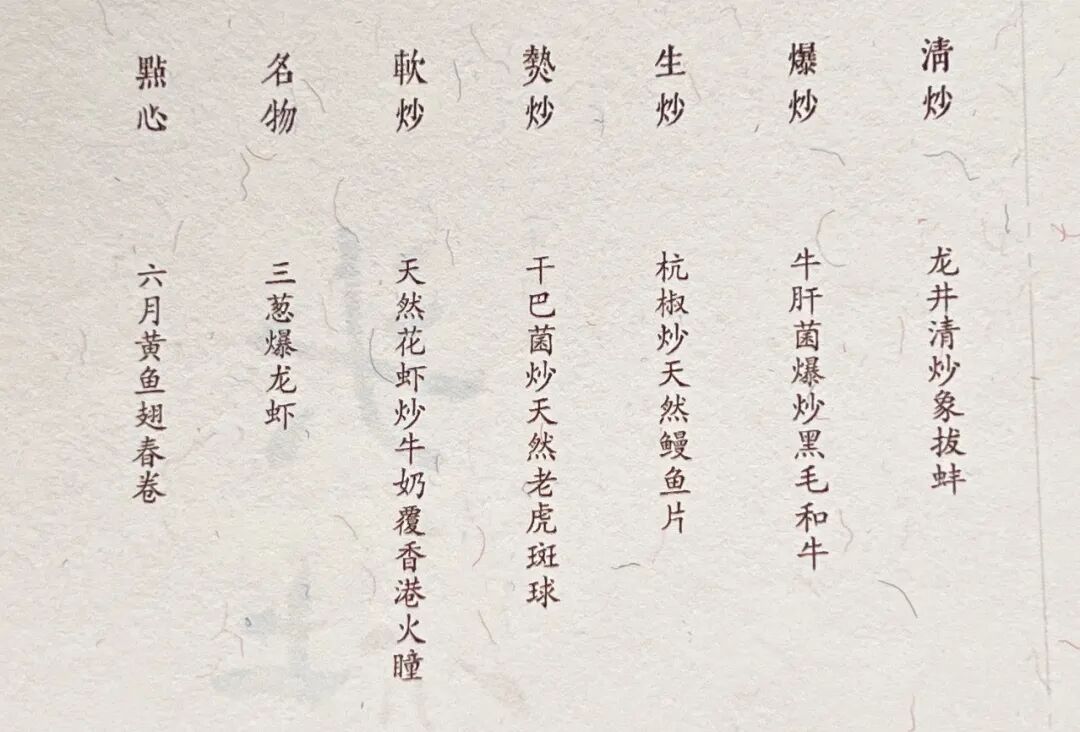 清炒
龙井清炒象拔蚌
爆炒
牛肝菌爆炒黑毛和牛
生炒
杭椒炒天然鳗鱼片
熱炒
干巴菌炒天然老虎斑球
軟炒
天然花虾炒牛奶覆香港火瞳
名物
三葱爆龙虾
點心
六月黄鱼翅春卷